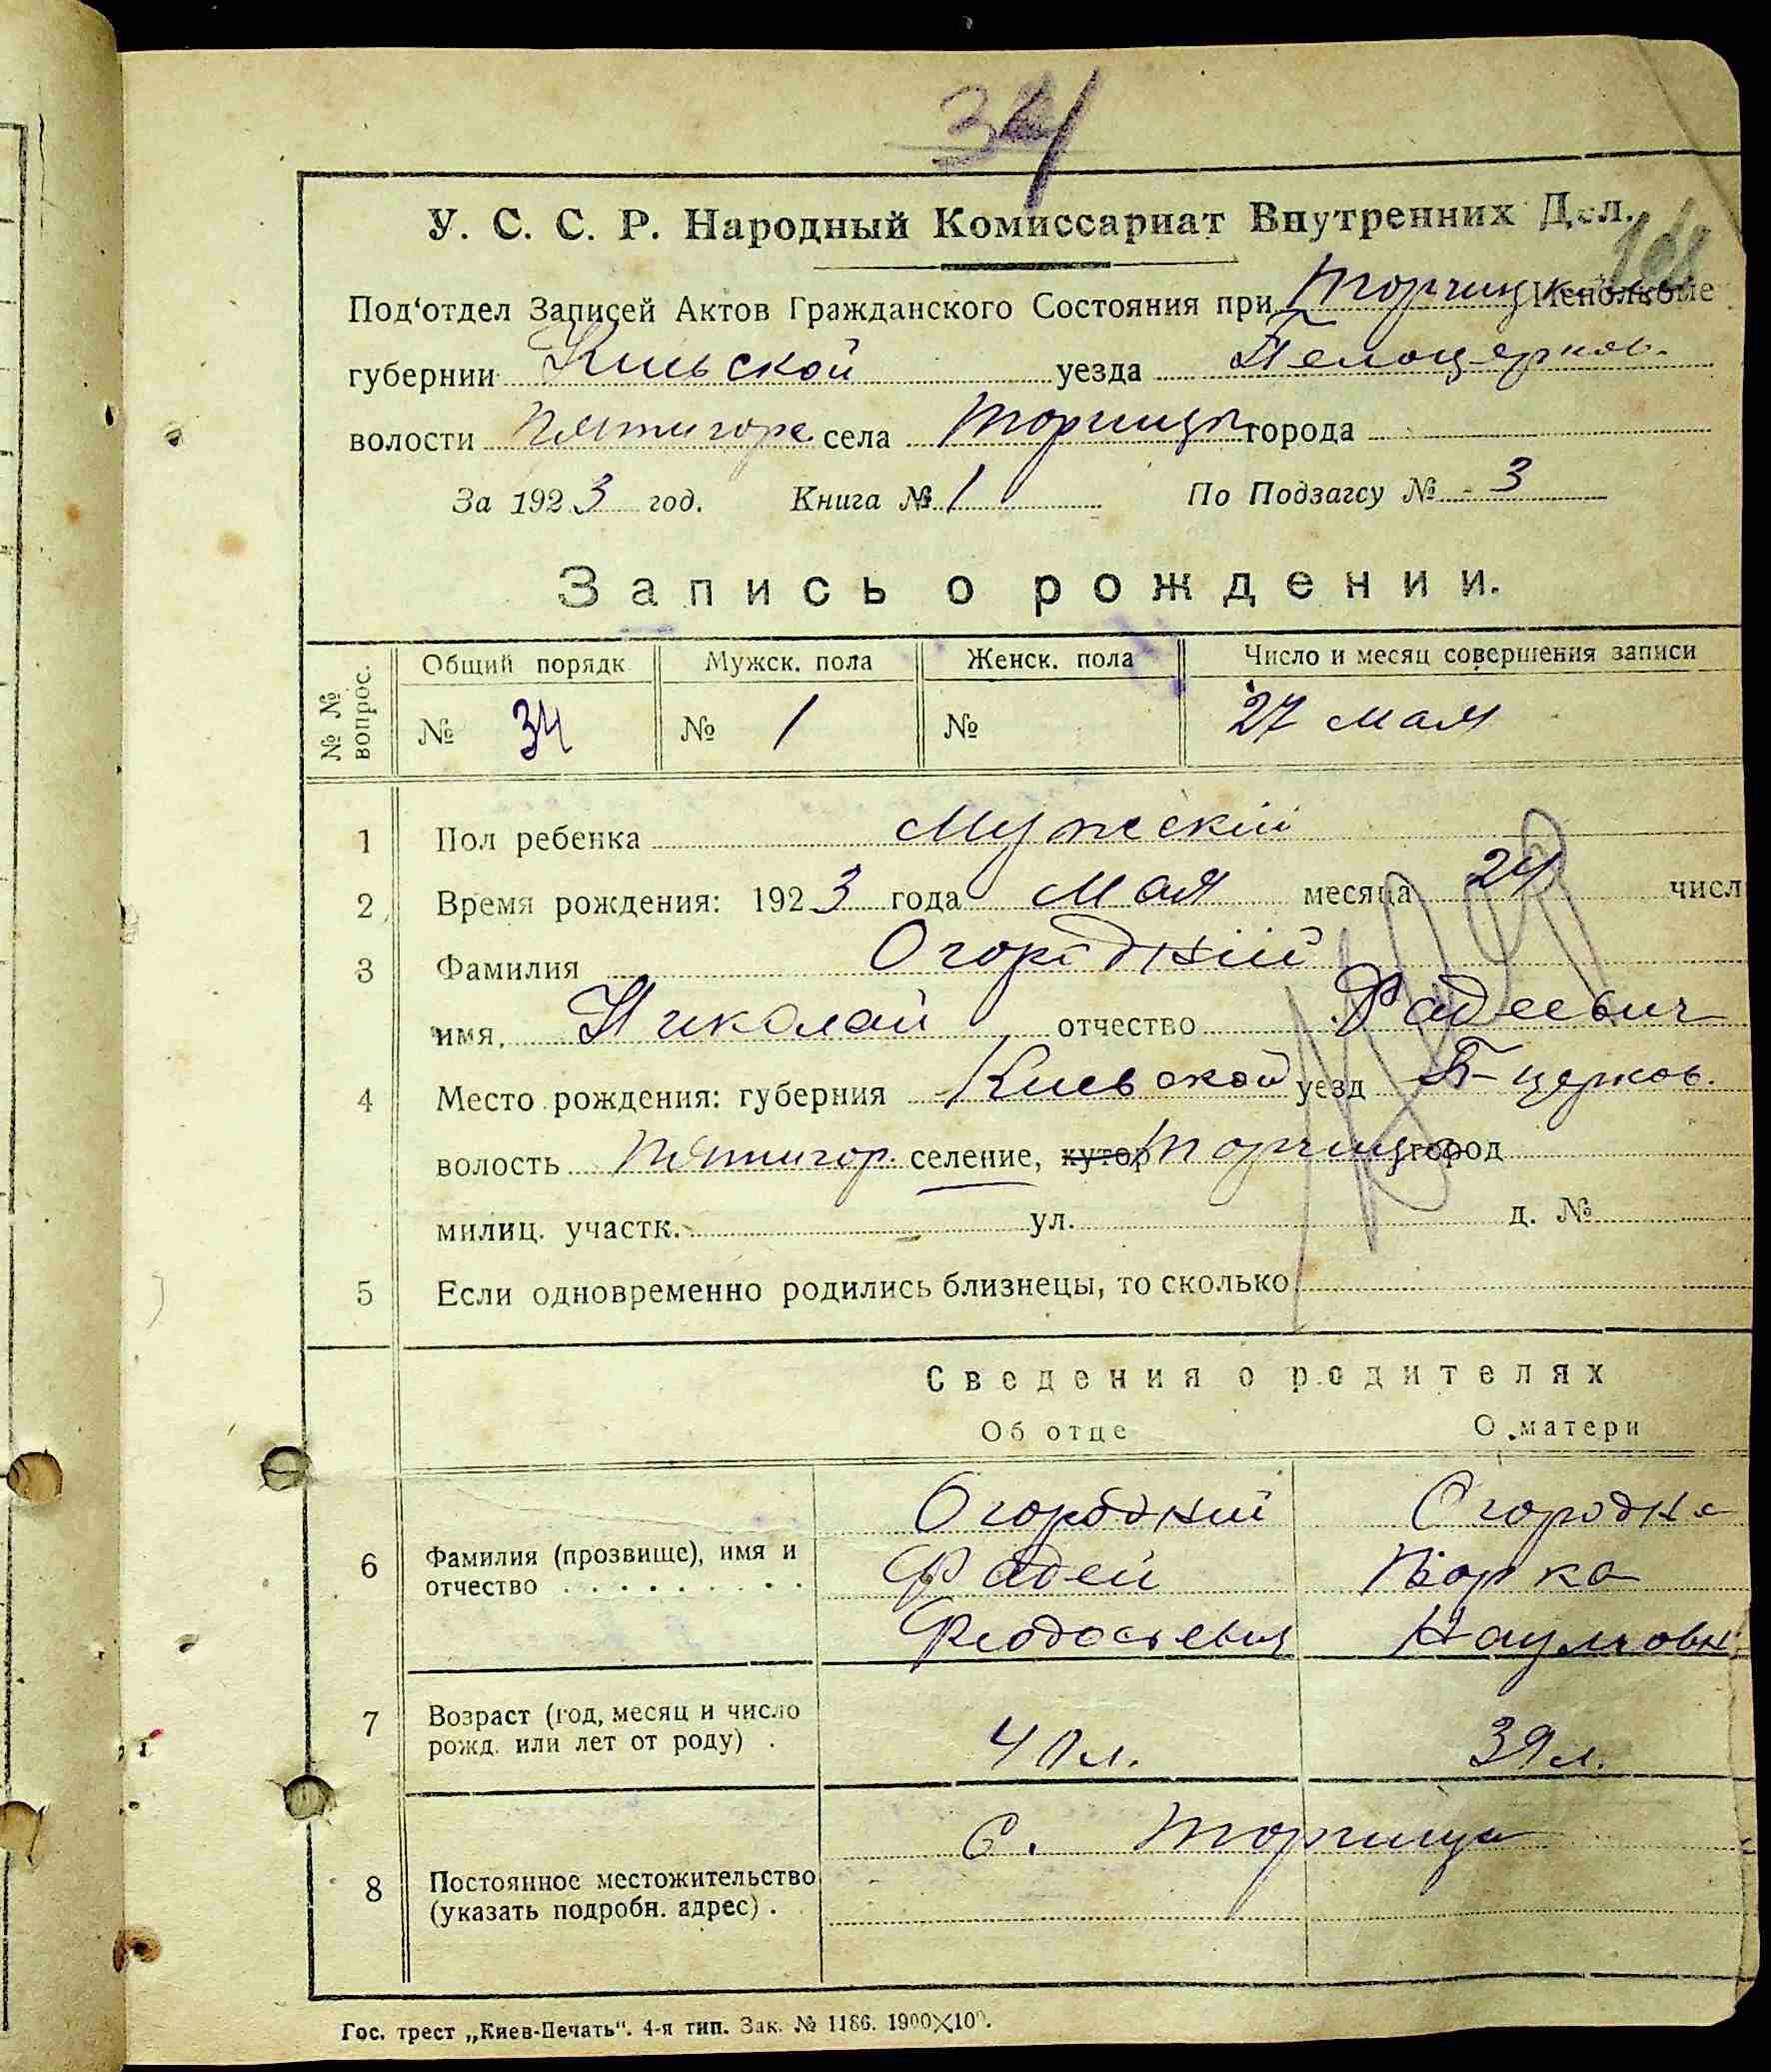 34
У. С. С. Р. Народный Комиссариат Внутренних Дел.
168
Под‘отдел Записей Актов Гражданского Состояния при Торчицком Исполкоме
губернии Киевской уезда Белоцерков.
волости Пятигорс. села Торчицы города
За 1923 год. Книга № 1 По Подзагсу № 3
Запись о рождении.
№ № вопрос. Общий порядк Мужск. пола Женск. пола Число и месяц совершения записи
№ 34 № 1 № 27 мая
1 Пол ребенка Мужский
2 Время рождения: 1923 года Мая месяца 24 числ
3 Фамилия Огородний
имя, Николай отчество Фадеевич
4 Место рождения: губерния Киевской уезд Б-церков.
волость Пятигор. селение, хутор Торчица город
милиц. участк. ул. д. №
5 Если одновременно родились близнецы, то сколько
Сведения о родителях
Об отце О матери
Огородний Огородня
6 Фамилия (прозвище), имя и Фадей
отчество
Феодосьевич Наумовн
7 Возраст (год, месяц и число
рожд. или лет от роду) . 40 л. 39 л.
с. Торчица
8 Постоянное местожительство
(указать подробн. адрес) .
Гос. трест „Киев-Печать“. 4-я тип. Зак. № 1186. 1900×100.